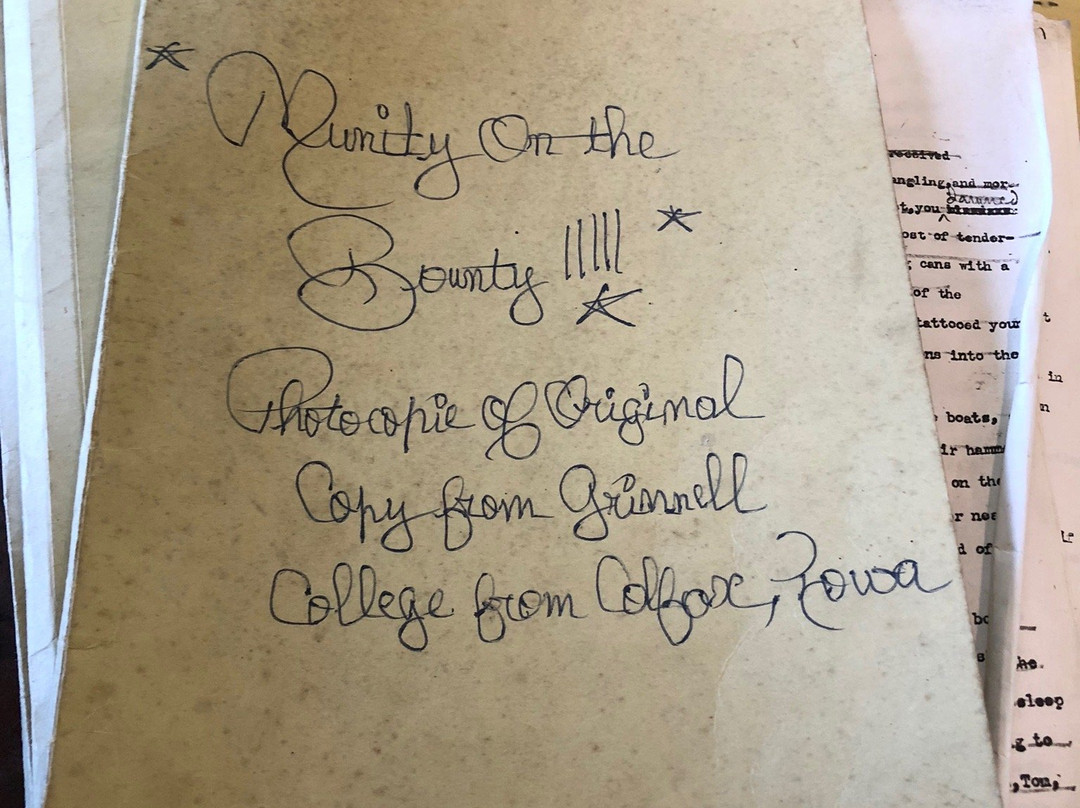 * Munity On the
Bounty ||||| *
*
Photocopie of Original
Copy from Grinnell
College from Colfax, Iowa
received
angling,and mor-
damned
t,you
ost of tender-
; cans with a
of the
tattooed your
ns into the
boats,
ir hamm
on the
r nee
d of
bo
s
t
in
n
he.
sleep
g to
,Tom,